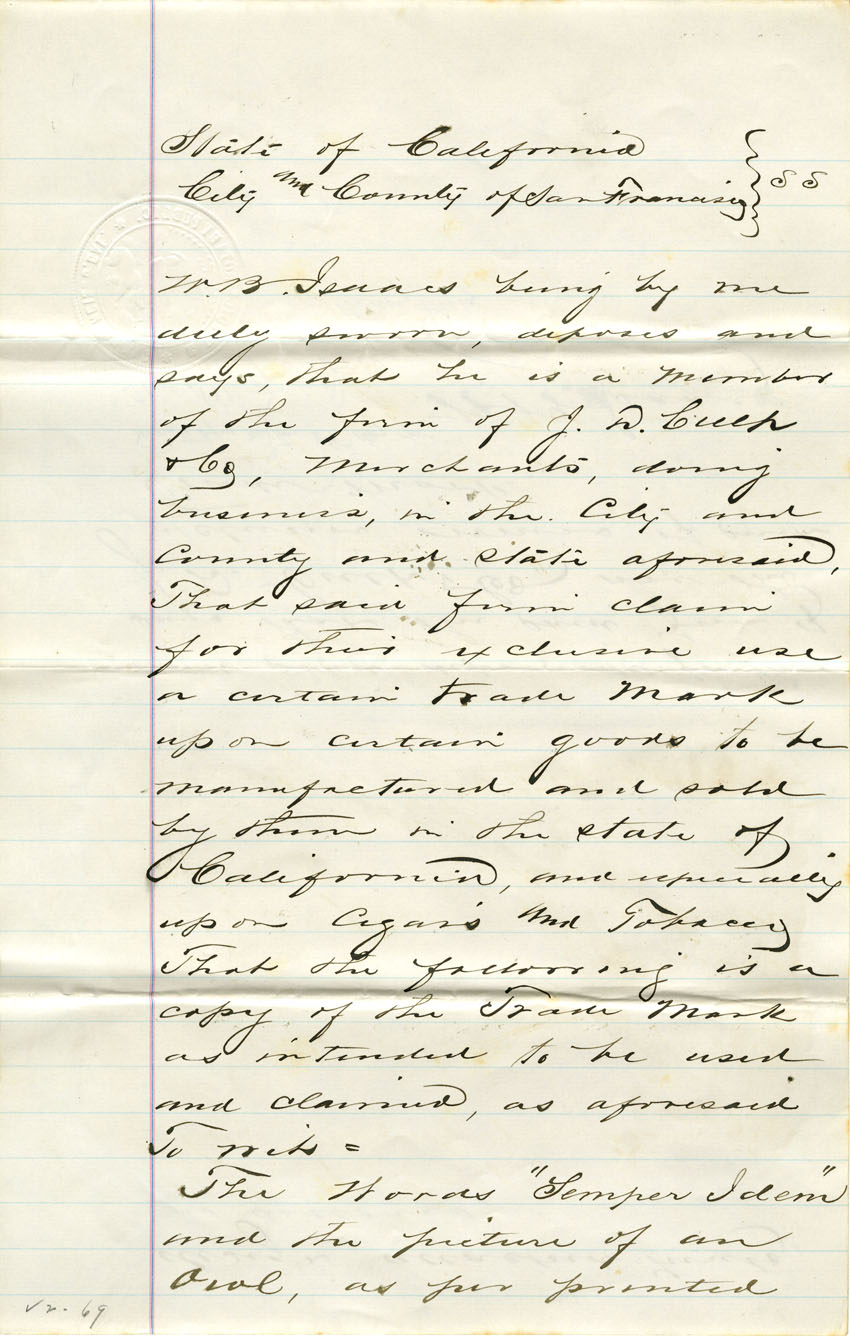 State of California
City and County of San Francisco } SS
W. B. Isaacs being by me
duly sworn, deposes and
says, that he is a member
of the firm of J. D. Culp
& Co, Merchants, doing
business, in the City and
County and state aforesaid,
That said firm claim
for their exclusive use
a certain Trade Mark
upon certain goods to be
manufactured and sold
by them in the state of
California, and especially
upon Cigars and Tobacco
That the following is a
copy of the Trade Mark
as intended to be used
and claimed, as aforesaid
To wit =
The Words "Semper Idem"
and the picture of an
Owl, as per printed
v2-69